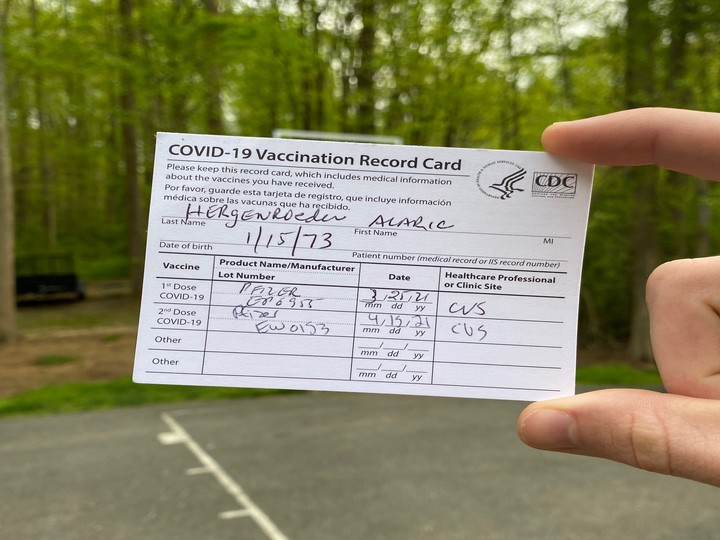 COVID-19 Vaccination Record Card
Please keep this record card, which includes medical information
about the vaccines you have received.
Por favor, guarde esta tarjeta de registro, que incluye información
médica sobre las vacunas que ha recibido.
HERgENROeDer ALARIC
Last Name First Name MI
1/15/73
Date of birth Patient number (medical record or IIS record number)
CDC
Vaccine Product Name/Manufacturer Date Healthcare Professional
Lot Number or Clinic Site
1st Dose PFIZER 3/25/21 CVS
COVID-19 mm dd yy
2nd Dose Pfizer 4/15/21 CVS
COVID-19 EW0153 mm dd yy
Other
mm dd yy
Other
mm dd yy